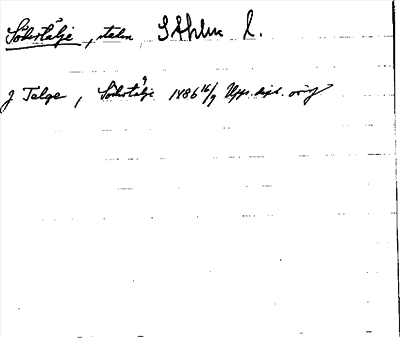 Södertälje, staden Sthlm l.
j Telge, Södertälje 1486 16/9 Upps. dipl. orig